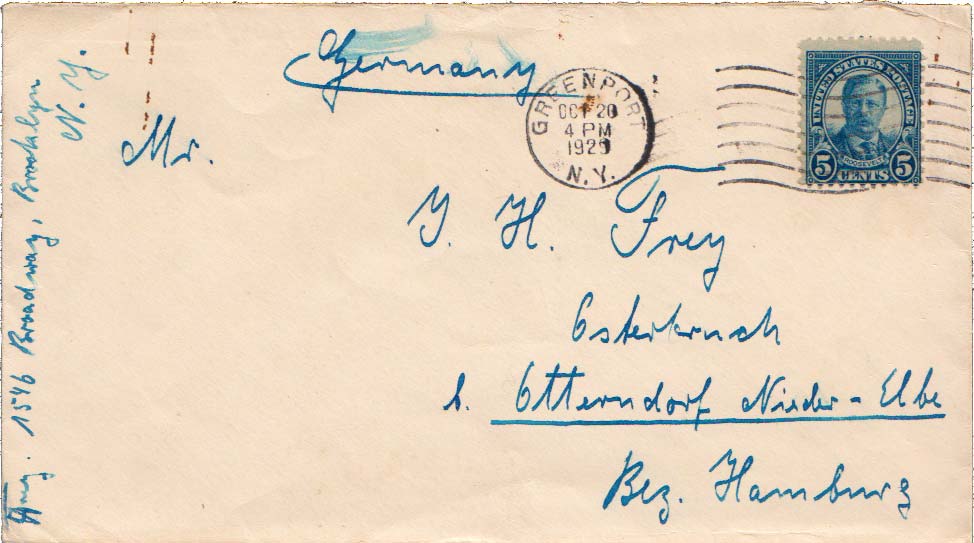 Germany
GREENPORT
OCT 20
4 PM
1925
N.Y.
UNITED STATES POSTAGE
ROOSEVELT
5 CENTS 5
Mr.
J. H. Frey
Osterbruch
b. Otterndorf Nieder-Elbe
Bez. Hamburg
1546 Broadway, Brooklyn
N. Y.